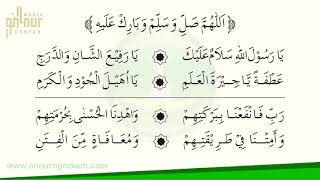 MEDIA
an-nur
CENTER
﴿ اَللّٰهُمَّ صَلِّ وَسَلِّمْ وَبَارِكْ عَلَيْهِ ﴾
يَا رَسُوْلَ اللهِ سَلَامٌ عَلَيْكَ ۞ يَا رَفِيْعَ الشَّانِ وَالدَّرَجِ
عَطْفَةً يَّا جِيْرَةَ الْعَلَمِ ۞ يَا أُهَيْلَ الْجُوْدِ وَالْكَرَمِ
رَبِّ فَانْفَعْنَا بِبَرْكَتِهِمْ ۞ وَاهْدِنَا الْحُسْنٰى بِحُرْمَتِهِمْ
وَأَمِتْنَا فِي طَرِيْقَتِهِمْ ۞ وَمُعَافَاةٍ مِنَ الْفِتَنِ
www.annurngrukem.com